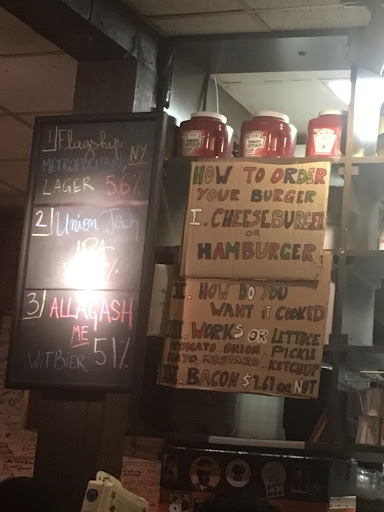 1) Flagship
METROPOLITAN, NY
LAGER 5.6%
2) Union Jack
IPA
%
3) ALLAGASH
ME
WITBIER 5.1%
HOW TO ORDER
YOUR BURGER
I. CHEESEBURGER
OR
HAMBURGER
II. HOW DO YOU
WANT IT COOKED
III. WORKS OR LETTUCE
TOMATO, ONION, PICKLE
MAYO, MUSTARD, KETCHUP
IV. BACON $1.61 OR NOT